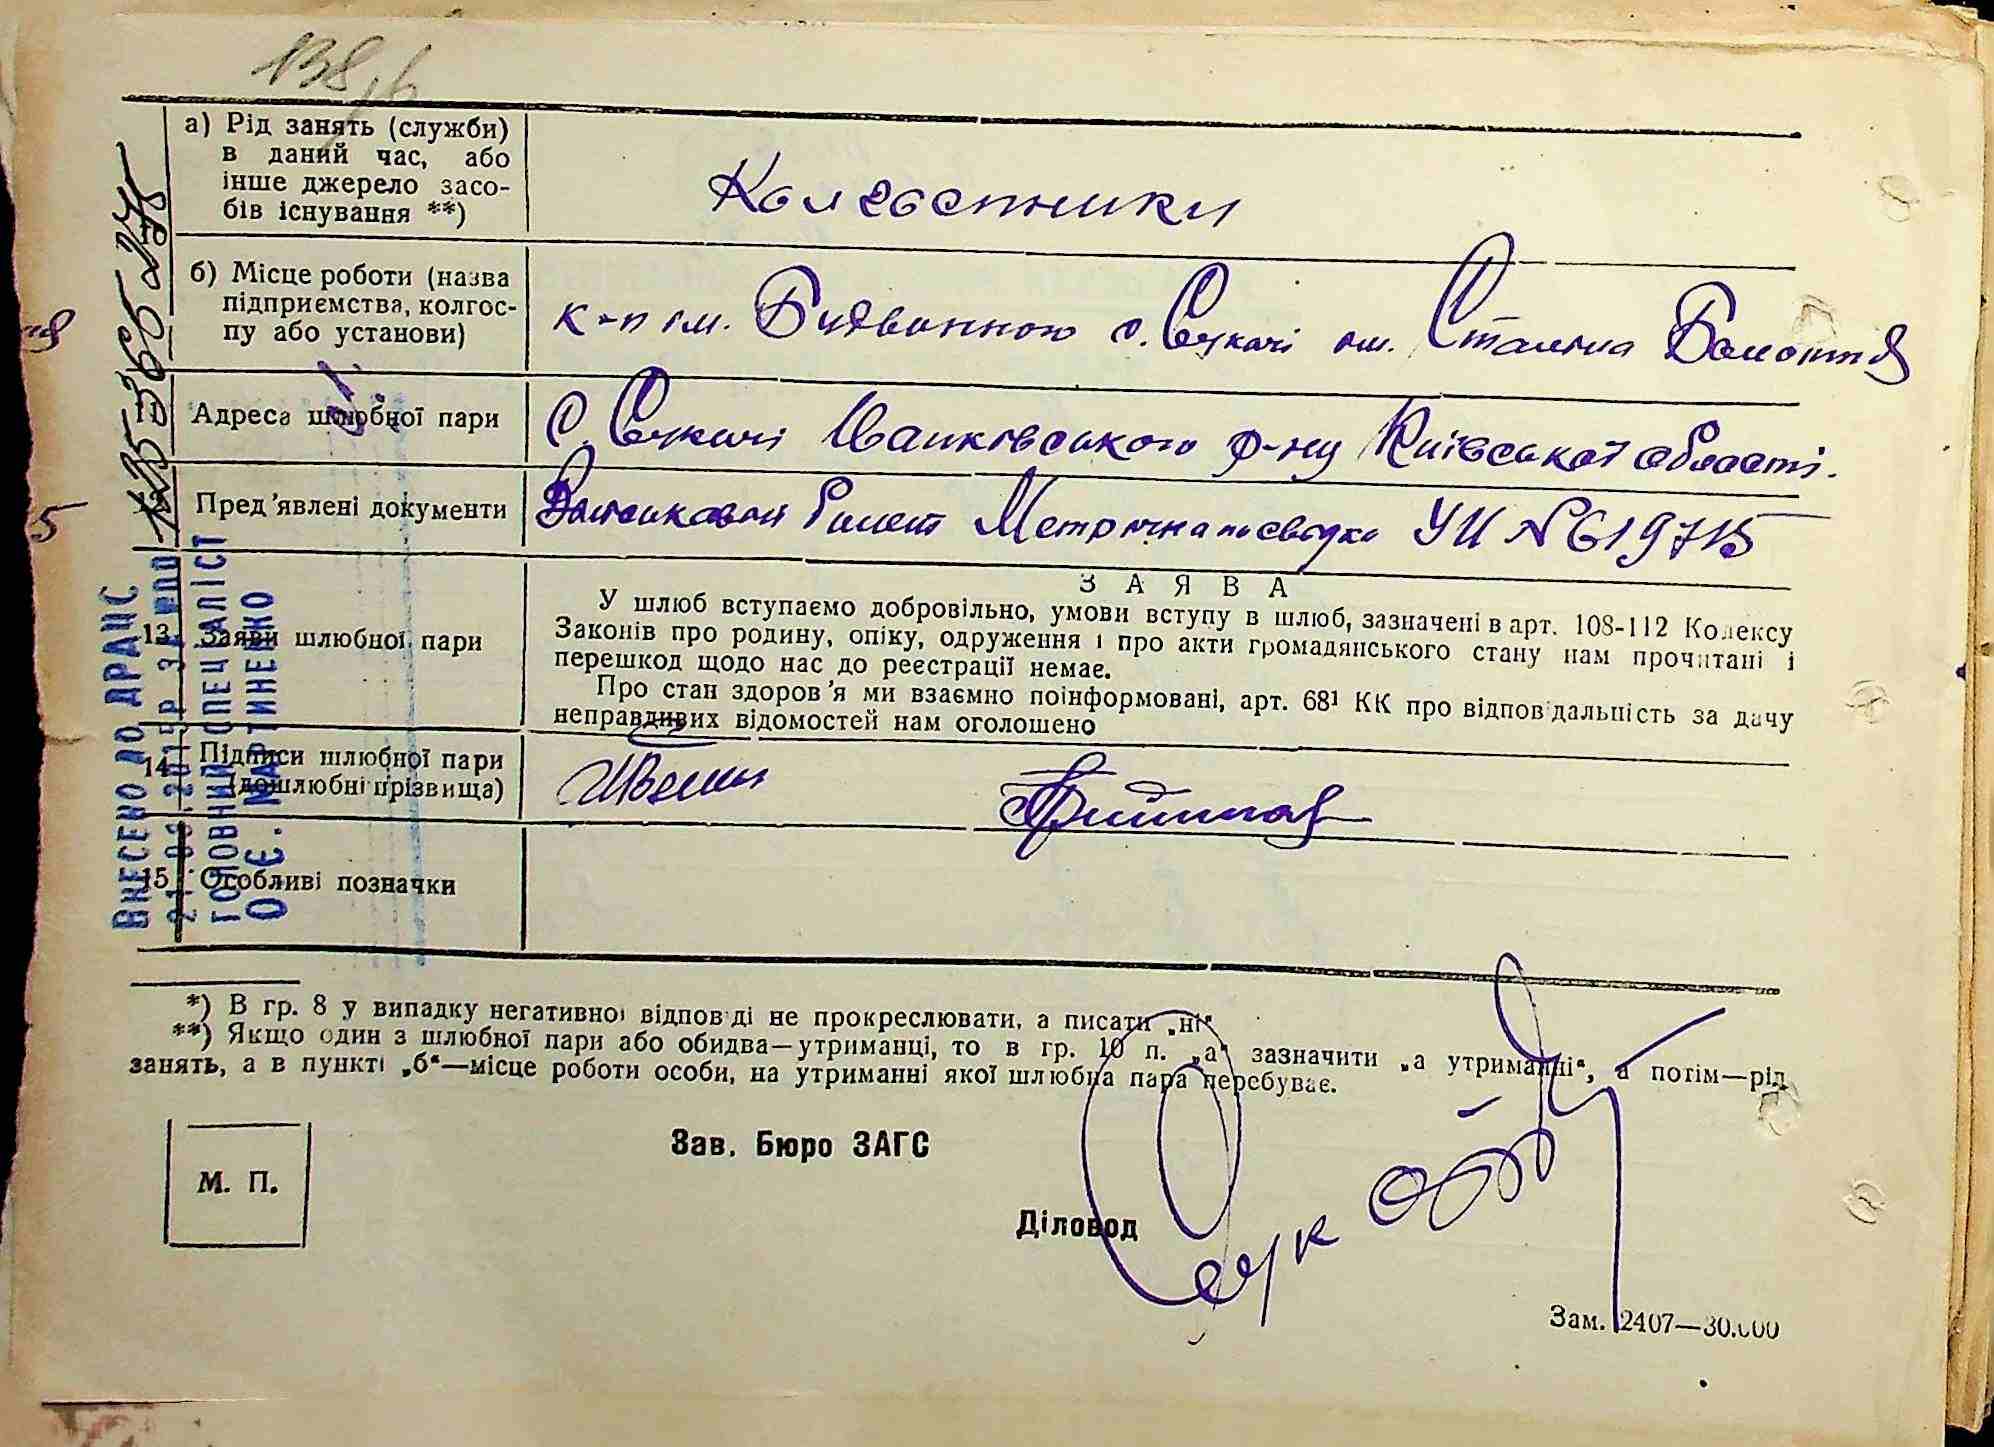 138,б
а) Рід занять (служби)
в даний час, або
інше джерело засо-
бів існування **)
Колгоспники
б) Місце роботи (назва
підприємства, колгос-
пу або установи)
к-п ім. с. Сукачі ім. Сталіна
Адреса шлюбної пари
С. Сукачі Іванківського р-ну Київської області.
Пред'явлені документи
Військовий білет Метрична посвідка УИ № 619715
13 Заяви шлюбної пари
ЗАЯВА
У шлюб вступаємо добровільно, умови вступу в шлюб, зазначені в арт. 108-112 Кодексу
Законів про родину, опіку, одруження і про акти громадянського стану нам прочитані і
перешкод щодо нас до реєстрації немає.
Про стан здоров'я ми взаємно поінформовані, арт. 68¹ КК про відповідальність за дачу
неправдивих відомостей нам оголошено
14 Підписи шлюбної пари
(дошлюбні прізвища)
15 Особливі позначки
*) В гр. 8 у випадку негативної відповіді не прокреслювати, а писати „ні“
**) Якщо один з шлюбної пари або обидва—утриманці, то в гр. 10 п. „а“ зазначити „а утриманні“, а потім—рід
занять, а в пункті „б“—місце роботи особи, на утриманні якої шлюбна пара перебуває.
М. П.
Зав. Бюро ЗАГС
Діловод
Зам. 2407—30.000
ВНЕСЕНО ДО ДРАЦС
ГОЛОВНИЙ СПЕЦІАЛІСТ
О.Є. МАРТИНЕНКО
5